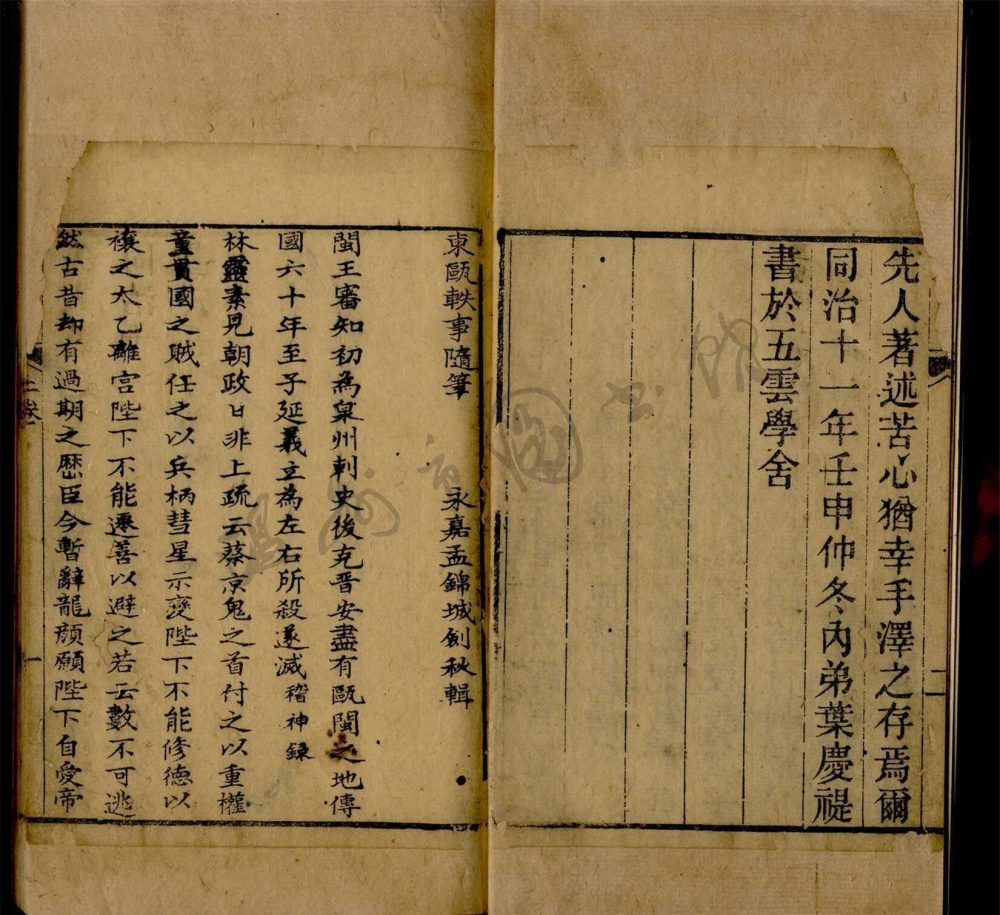 先人著述苦心猶幸手澤之存焉爾
同治十一年壬申仲冬內弟葉慶禔
書於五雲學舍
二
東甌軼事隨筆 永嘉孟錦城劍秋輯
閩王審知初為泉州刺史後克晋安盡有甌閩之地傳
國六十年至子延羲立為左右所殺遂滅稽神錄
林靈素見朝政日非上疏云蔡京鬼之首付之以重權
童貫國之賊任之以兵柄彗星示變陛下不能修德以
禳之太乙離宮陛下不能遷善以避之若云數不可逃
然古昔却有過期之歷臣今暫辭龍顏願陛下自愛帝
上卷
一